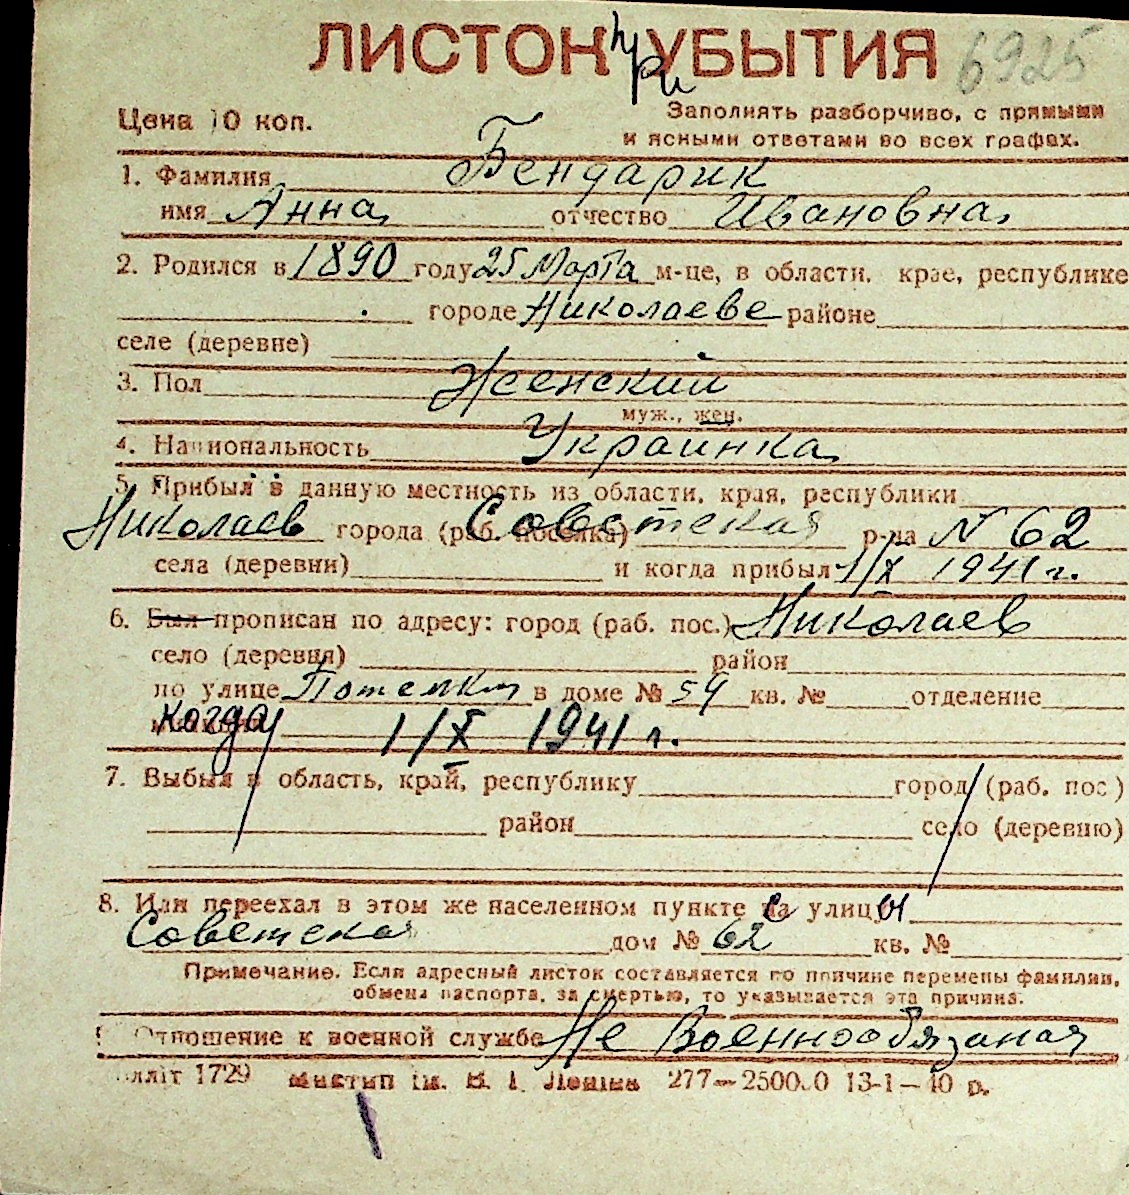 ЛИСТОК при УБЫТИЯ 6925
Цена 10 коп.
Заполнять разборчиво, с прямыми
и ясными ответами во всех графах.
1. Фамилия Бендарик
имя Анна отчество Ивановна
2. Родился в 1890 году 25 Марта м-це, в области, крае, республике
городе Николаеве районе
селе (деревне)
3. Пол Женский
муж., жен.
4. Национальность Украинка
5. Прибыл в данную местность из области, края, республики
Николаев города (раб. поселка) Советская р-на № 62
села (деревни) и когда прибыл 1/X 1941 г.
6. Был прописан по адресу: город (раб. пос.) Николаев
село (деревня) район
по улице в доме № 59 кв. № отделение
когда 1/X 1941 г.
7. Выбыл в область, край, республику город (раб. пос.)
район село (деревню)
8. Или переехал в этом же населенном пункте с улицы
Советская дом № 62 кв. №
Примечание. Если адресный листок составляется по причине перемены фамилии,
обмена паспорта, за смертью, то указывается эта причина.
9. Отношение к военной службе Не Военнообязаная
лліт 1729 Миктип ім. В. І. Леніна 277—25000 13-1—40 р.